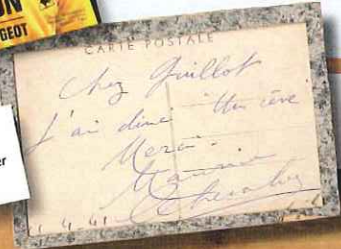 ON
GEOT
er
CARTE POSTALE
Chez Guillot
J'ai diné. Un rêve
Merci.
Maurice
Chevalier
4-41